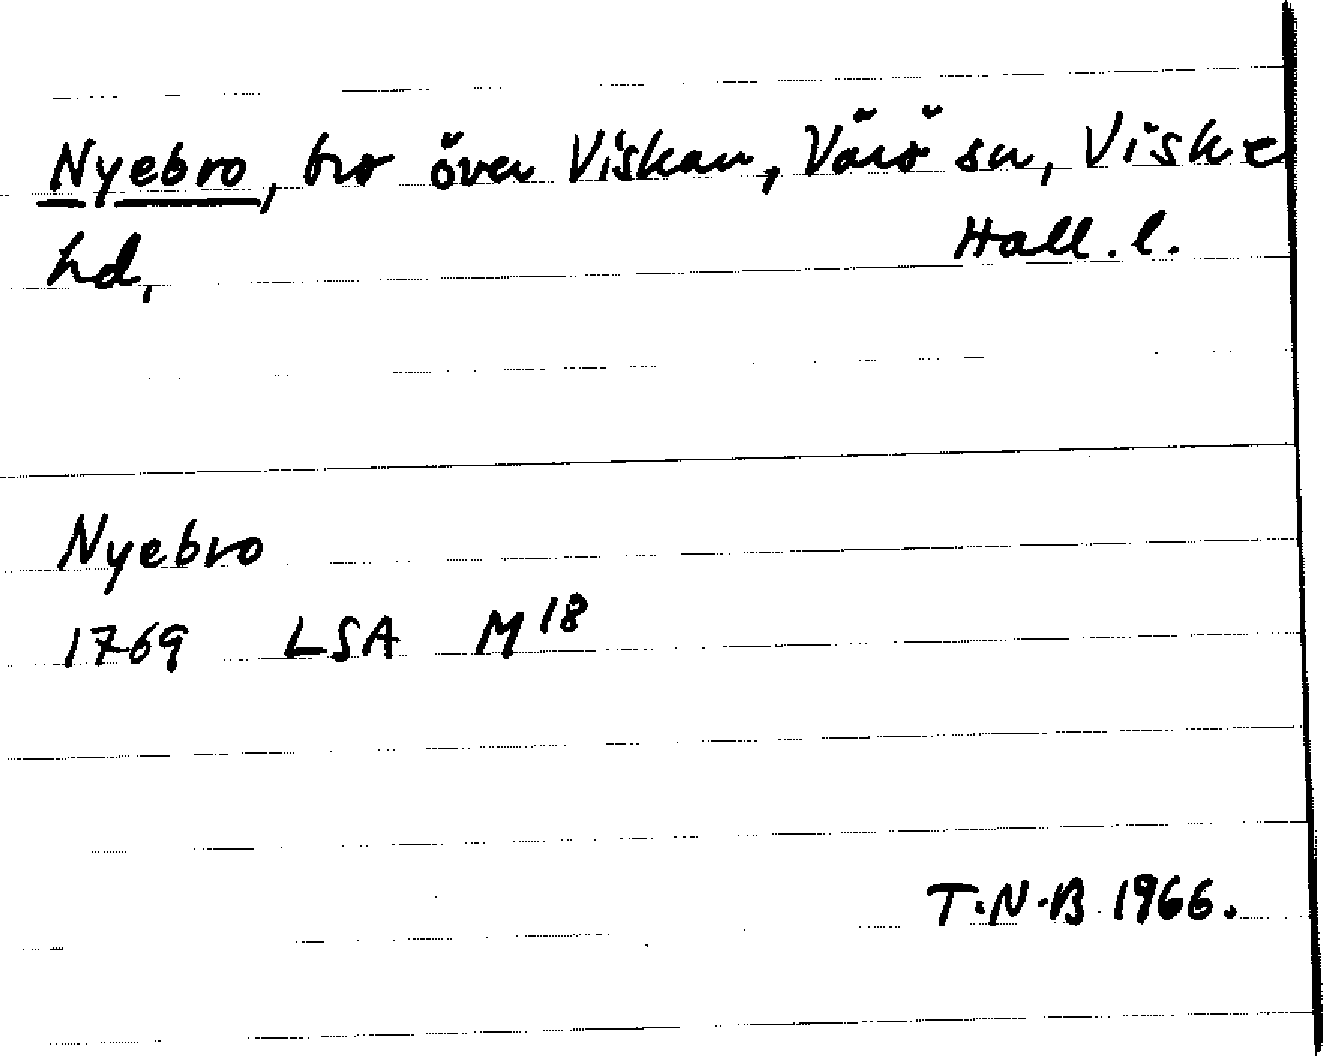 Nyebro, bro över Viskan, Värö sn, Viske
hd, Hall. l.
Nyebro
1769 LSA M18
T.N.B. 1966.